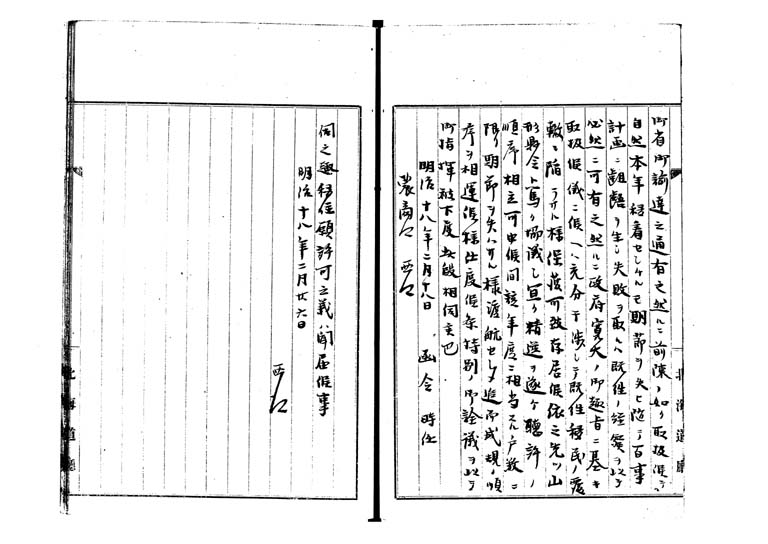 御省御諭達之通有之然ルニ前陳ノ如ク取扱候テハ
自然本年移着セシムルモ期節ヲ失ヒ随テ百事
計画ニ齟齬ヲ生シ失敗ヲ取ルハ既往ノ経験ヲ以テ
必然ニ可有之然ルニ政府寛大ノ御趣旨ニ基キ
取扱候儀ニ候ヘハ充分干渉シテ既往移民ノ覆
轍ニ陥ラサル様保護可致存居候依之先ツ山
形県令ト篤ク協議シ宜ク精選ヲ遂ケ聴許ノ
順序相立可申候間該年度ニ相当スル戸数ニ
限リ期節ヲ失ハサル様渡航セシメ追而成規ノ順
序ヲ相運候様仕度候条特別ノ御詮議ヲ以テ
御指揮被下度此段相伺候也
明治十八年二月十八日 函令 時任
農商
伺之趣移住願許可之義ハ聞届候事
明治十八年二月廿六日
北海道庁
北海道庁